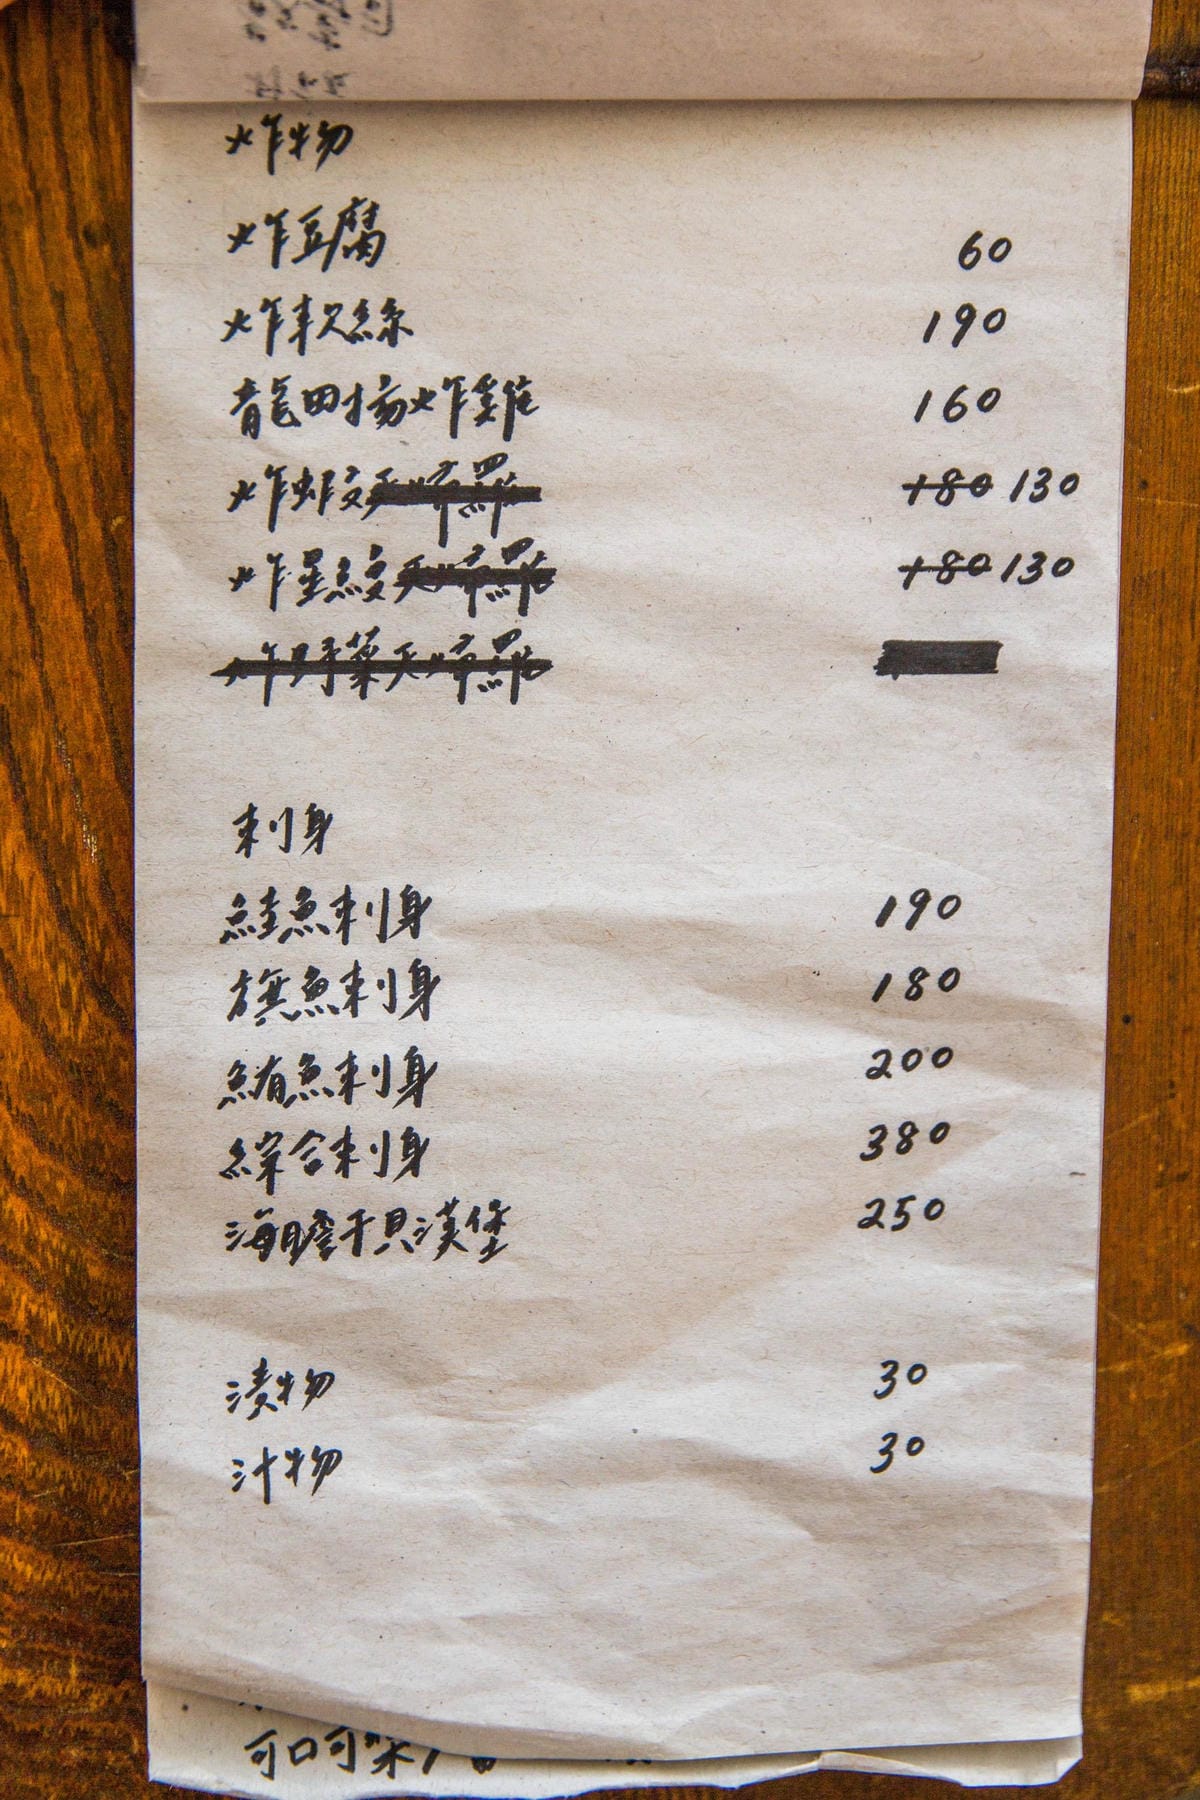 炸物
炸豆腐 60
炸軟絲 190
龍田揚炸雞 160
炸蝦天婦羅 180 130
炸星鰻天婦羅 180 130
炸野菜天婦羅
刺身
鮭魚刺身 190
旗魚刺身 180
鮪魚刺身 200
綜合刺身 380
海膽干貝漢堡 250
漬物 30
汁物 30
可口可樂